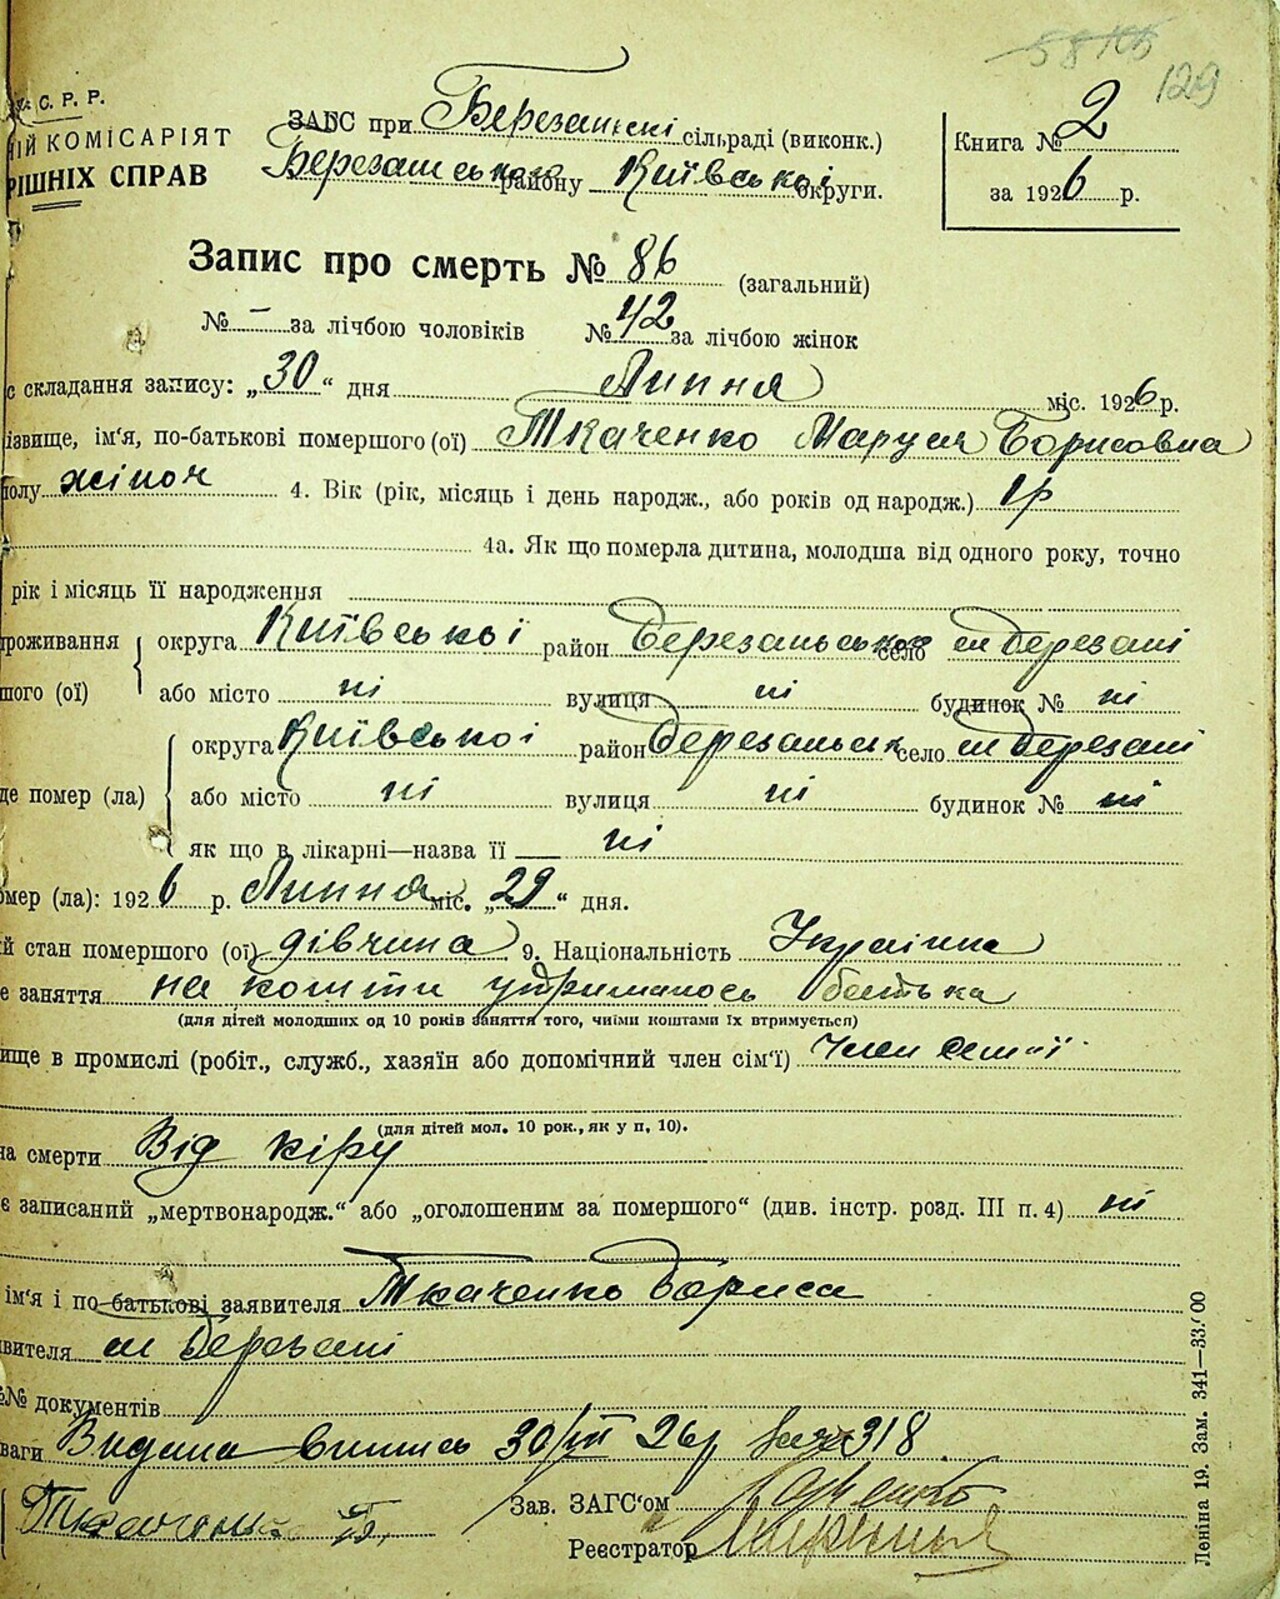 58 105
129
С. Р. Р.
ІЙ КОМІСАРІЯТ
РІШНІХ СПРАВ
ЗАГС при Березанскі сільраді (виконк.)
Березанського району Київської округи.
Книга № 2
за 1926 р.
Запис про смерть № 86 (загальний)
№ - за лічбою чоловіків № 42 за лічбою жінок
с складання запису: „30“ дня Липня міс. 1926 р.
ізвище, ім'я, по-батькові помершого (ої) Ткаченко Маруся Борисовна
полу жіноч 4. Вік (рік, місяць і день народж., або років од народж.) 1 р
4а. Як що померла дитина, молодша від одного року, точно
рік і місяць її народження
роживання округа Київської район Березанського село м Березані
шого (ої) або місто ні вулиця ні будинок № ні
округа Київської район Березанськ село м Березані
де помер (ла) або місто ні вулиця ні будинок № ні
як що в лікарні—назва її ні
омер (ла): 1926 р. Липня міс. „29“ дня.
й стан помершого (ої) дівчина 9. Національність Українка
е заняття на кошти утрималось батька
(для дітей молодших од 10 років заняття того, чиїми коштами їх втримується)
ище в промислі (робіт., служб., хазяїн або допомічний член сім'ї) Член семії
(для дітей мол. 10 рок., як у п. 10).
на смерти Від кіру
є записаний „мертвонародж.“ або „оголошеним за помершого“ (див. інстр. розд. III п. 4) ні
ім'я і по-батькові заявителя Ткаченко Бориса
явителя м Березані
№№ документів
ваги Видана випись 30/VII 26 р 318
Зав. ЗАГС'ом
Реєстратор
Леніна 19. Зам. 341—33.000